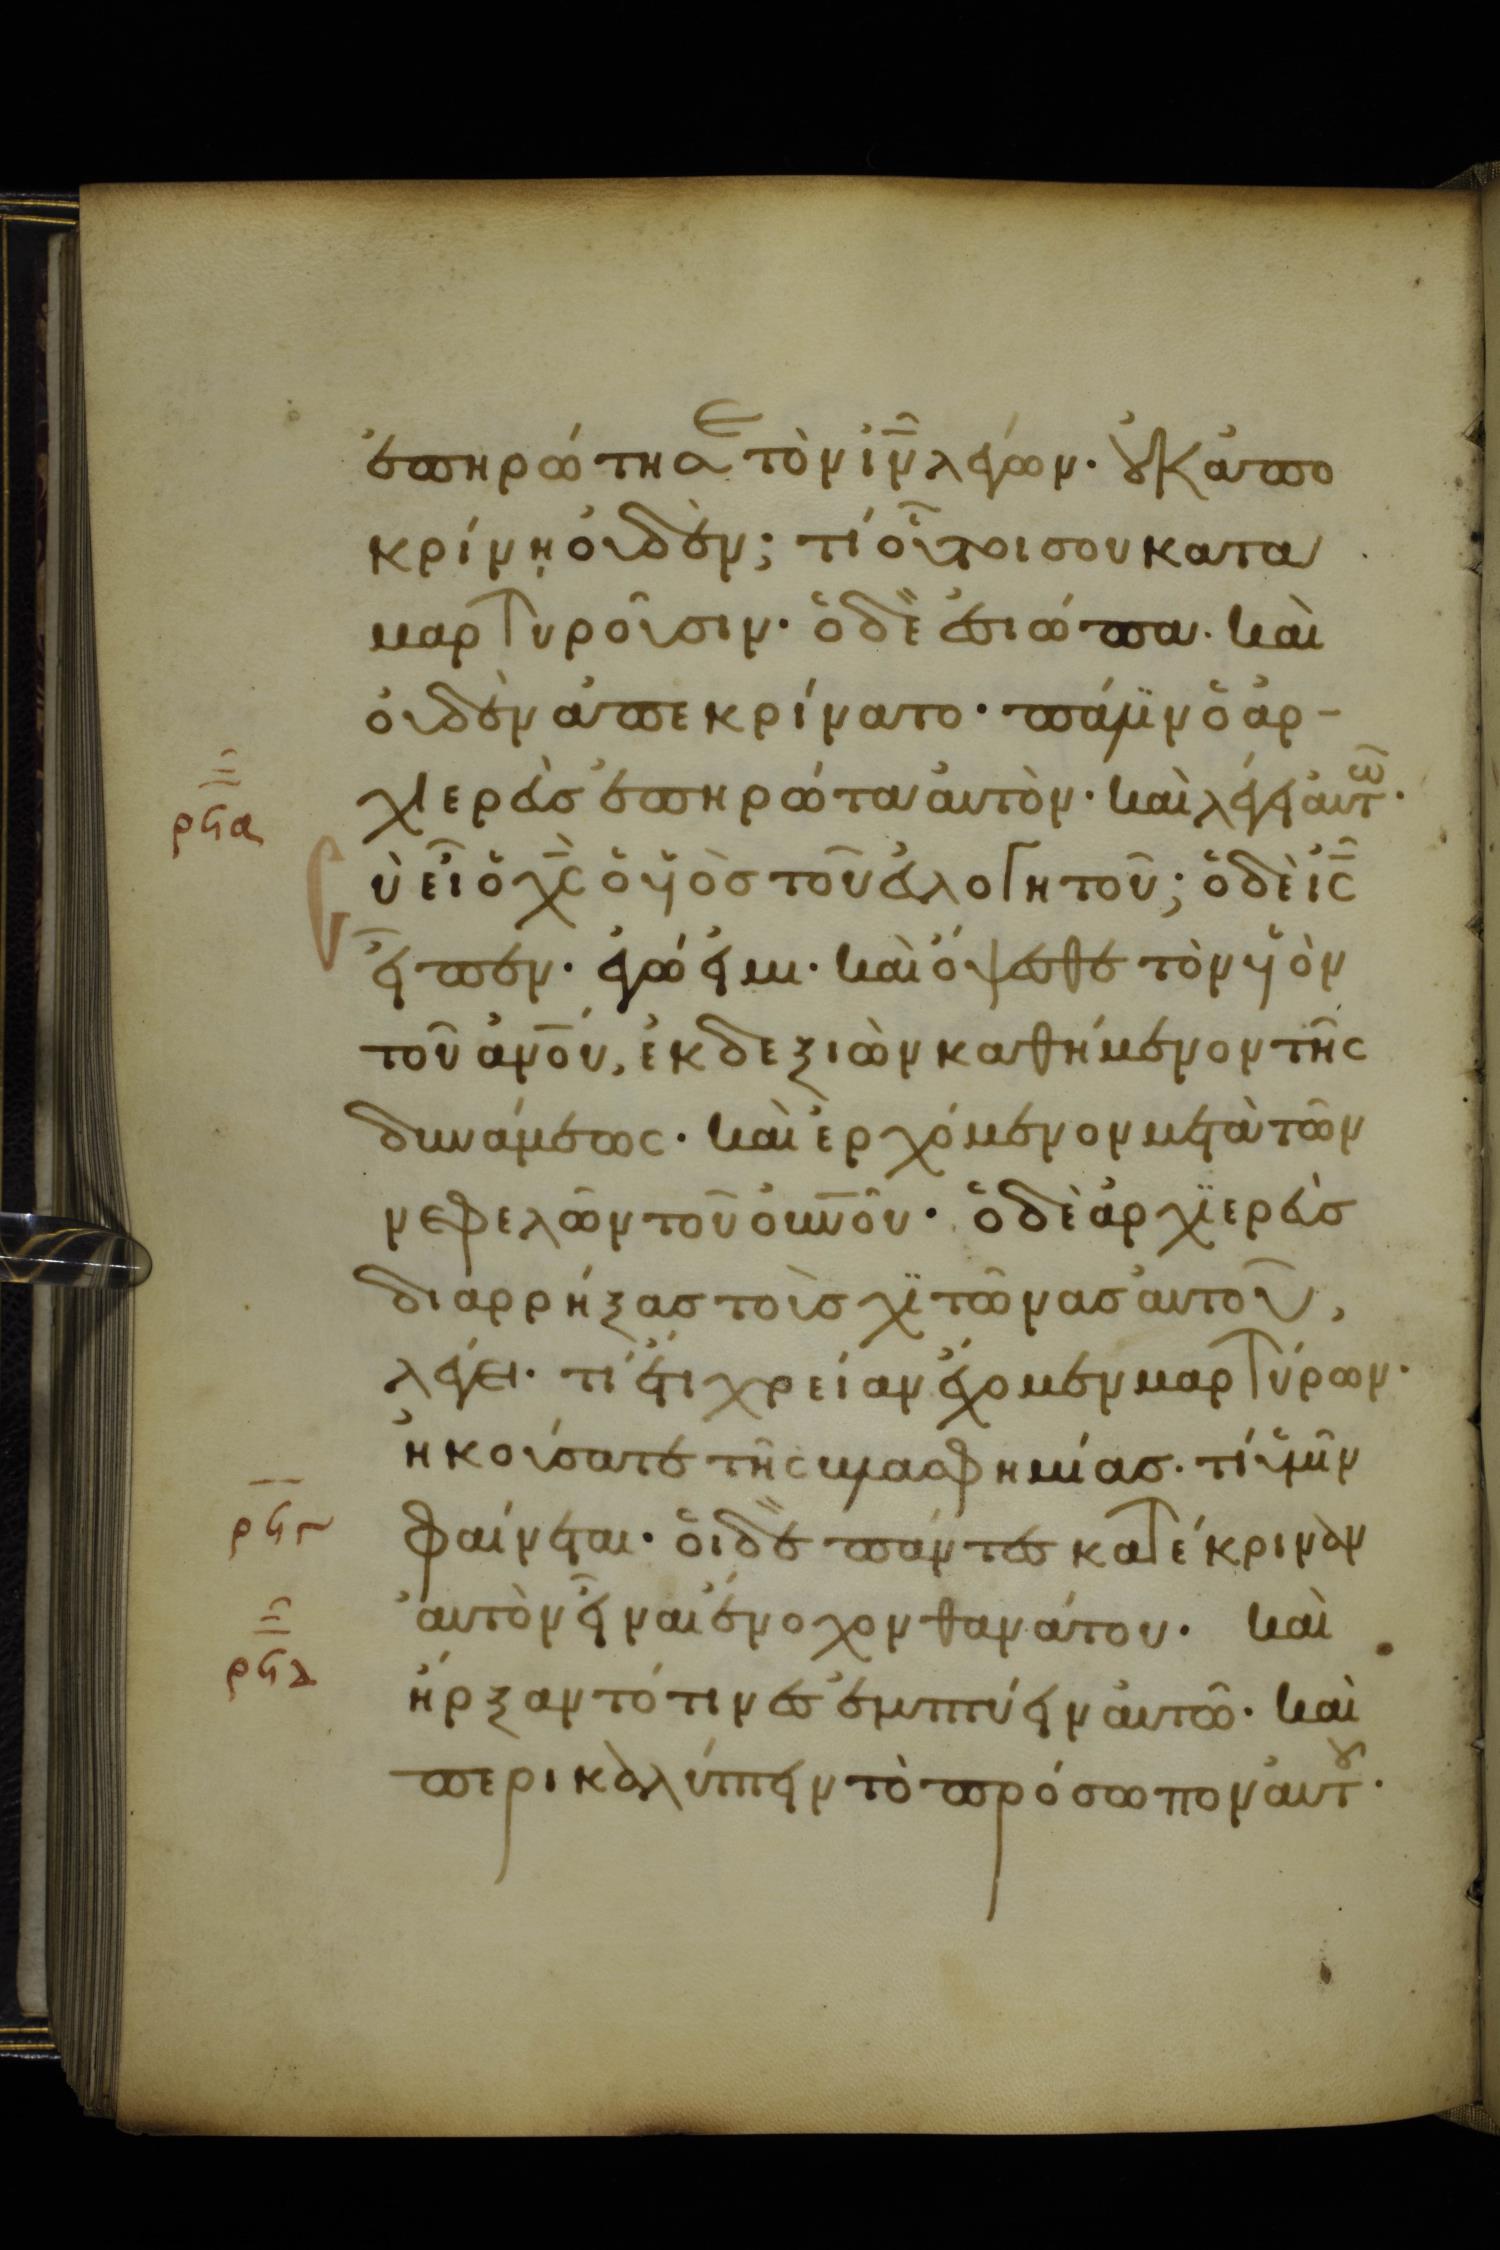 ἐπηρώτησε τὸν ἰν̅ λέγων· οὐκ ἀπο
κρίνῃ οὐδέν; τί οὗτοί σου κατα
μαρτυροῦσιν· ὁ δὲ ἐσιώπα· καὶ
οὐδὲν ἀπεκρίνατο· πάλϊν ὁ ἀρ-
χιερεὺς ἐπηρώτα αὐτὸν· καὶ λέγει αὐτῶ·
ρϟα
σὺ εἶ ὁ χ̅ς̅ ὁ υἱὸς τοῦ εὐλογητοῦ; ὁ δὲ ἰ̅ς̅
εἶπεν· ἐγώ εἰμι· καὶ ὄψεσθε τὸν υἱὸν
τοῦ α̅ν̅ο̅υ̅, ἐκ δεξιῶν καθήμενον τῆς
δυνάμεως· καὶ ἐρχόμενον μετὰ τῶν
νεφελῶν τοῦ ο̅υ̅ν̅ο̅υ̅· ὁ δὲ ἀρχϊερεὺς
διαρρήξας τοὺς χϊτῶνας αὐτοῦ,
λέγει· τί ἔτι χρείαν ἔχομεν μαρτύρων·
ἠκούσατε τῆς βλασφημίας· τί ὑμῖν
ρϟγ
φαίνεται· οἱ δὲ πάντες κατέκριναν
αὐτὸν εἶναι ἔνοχον θανάτου· καὶ
ρϟδ
ἤρξαντό τινες ἐμπτύειν αὐτῶ· καὶ
περικαλύπτειν τὸ πρόσωπον αὐτοῦ·